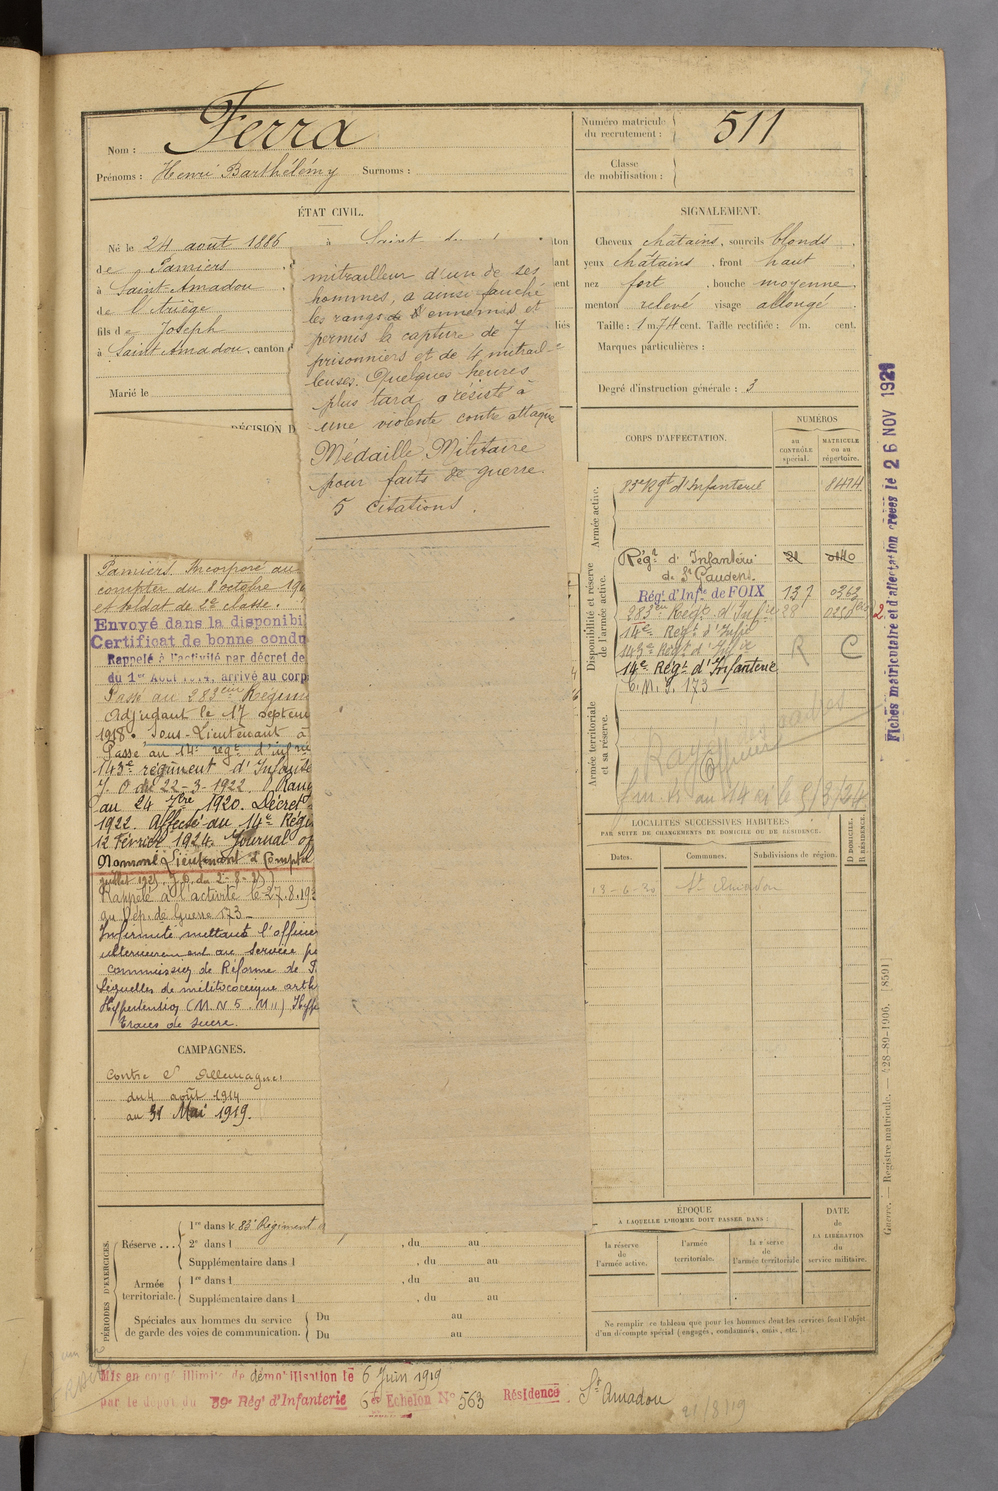 Nom : Ferra
Prénoms : Henri Barthélémy Surnoms :
Numéro matricule du recrutement : 511
Classe de mobilisation :
ÉTAT CIVIL.
Né le 24 août 1886 à Saint
de Pamiers
à Saint-Amadou
de l'Ariège
fils de Joseph
à Saint Amadou, canton
Marié le
SIGNALEMENT.
Cheveux châtains, sourcils blonds
yeux châtains, front haut
nez fort, bouche moyenne
menton relevé visage allongé
Taille : 1 m. 74 cent. Taille rectifiée : m. cent.
Marques particulières :
Degré d'instruction générale : 3
mitrailleur d'un de ses
hommes, a ainsi fauché
les rangs ennemis et
permis la capture de 7
prisonniers et de 4 mitrail-
leuses. Quelques heures
plus tard, a résisté à
une violente contre attaque
Médaille Militaire
pour faits de guerre.
5 citations.
DÉCISION D
Pamiers. Incorporé au
compter du 8 octobre 190
et soldat de 2e classe.
Envoyé dans la disponibi
Certificat de bonne condu
Rappelé à l'activité par décret de
du 1er Août 1914, arrivé au corp
Passé au 283eme Régim
Adjudant le 17 septem
1918. Sous-Lieutenant à
Passé au 14e regt d'infrie
143e régiment d'Infante
J. O du 22-3-1922. Rang
au 24 7bre 1920. Décret
1922. Affecté au 14e Régi
12 Février 1924. Journal of
Nommé Lieutenant à Compte
juillet 192
Rappelé à l'activité le 27.8.193
au Dép. de Guerre 173
Infirmité mettant l'officier
ultérieurement au service
commission de Réforme de
Séquelles de mélitococcique arth
Hypertension
traces de sucre.
CORPS D'AFFECTATION.
NUMÉROS
au CONTRÔLE spécial.
MATRICULE ou au répertoire.
Armée active.
83e Rgt d'Infanterie 8474
Disponibilité et réserve de l'armée active.
Régt d'Infanterie
de St Gaudens.
Rég. d'Infie de FOIX 137 0362
283eme Regt d'Infie 28
14e Regt d'Infie
143e Regt d'Infie R C
14e Régt d'Infanterie
C. M. I. 173
Armée territoriale et sa réserve.
Rayé des cadres
Officier
au 14 RI le 5/3/24
Fiches matriculaire et d'affectation créées le 26 NOV 1921
LOCALITÉS SUCCESSIVES HABITÉES
PAR SUITE DE CHANGEMENTS DE DOMICILE OU DE RÉSIDENCE.
Dates. Communes. Subdivisions de région. D DOMICILE. R RÉSIDENCE.
13-6-20 St Amadou
CAMPAGNES.
Contre l'Allemagne
du 4 août 1914
au 31 Mai 1919.
PÉRIODES D'EXERCICES.
Réserve ... 1re dans le 83e Régiment
2e dans l , du au
Supplémentaire dans l , du au
Armée territoriale. 1re dans l , du au
Supplémentaire dans l , du au
Spéciales aux hommes du service de garde des voies de communication. Du au
Du au
ÉPOQUE
À LAQUELLE L'HOMME DOIT PASSER DANS :
la réserve de l'armée active.
l'armée territoriale.
la réserve de l'armée territoriale
DATE de LA LIBÉRATION du service militaire.
Ne remplir ce tableau que pour les hommes dont les services font l'objet
d'un décompte spécial (engagés, condamnés, omis, etc.)
Guerre. — Registre matricule. — 428-89-1906. [8591]
Mis en congé illimité de démobilisation le 6 Juin 1919
par le dépôt du 59e Rég' d'Infanterie 6e Echelon No 563 Résidence St Amadou
21/8/19